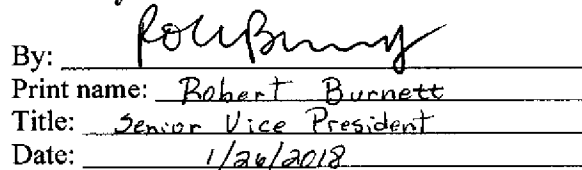 By:
Print name: Robert Burnett
Title: Senior Vice President
Date: 1/26/2018